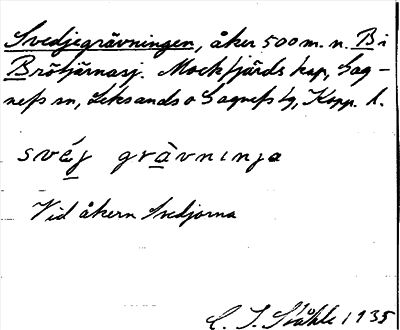 Svedjegrävningen, åker 500 m. n. B i
Brötjärnasj. Mockfjärds kap, Gag-
nefs sn, Leksands o Gagnefs tg, Kopp. l.
svéj grävninja
Vid åkern Svedjorna
C. I. Ståhle 1935